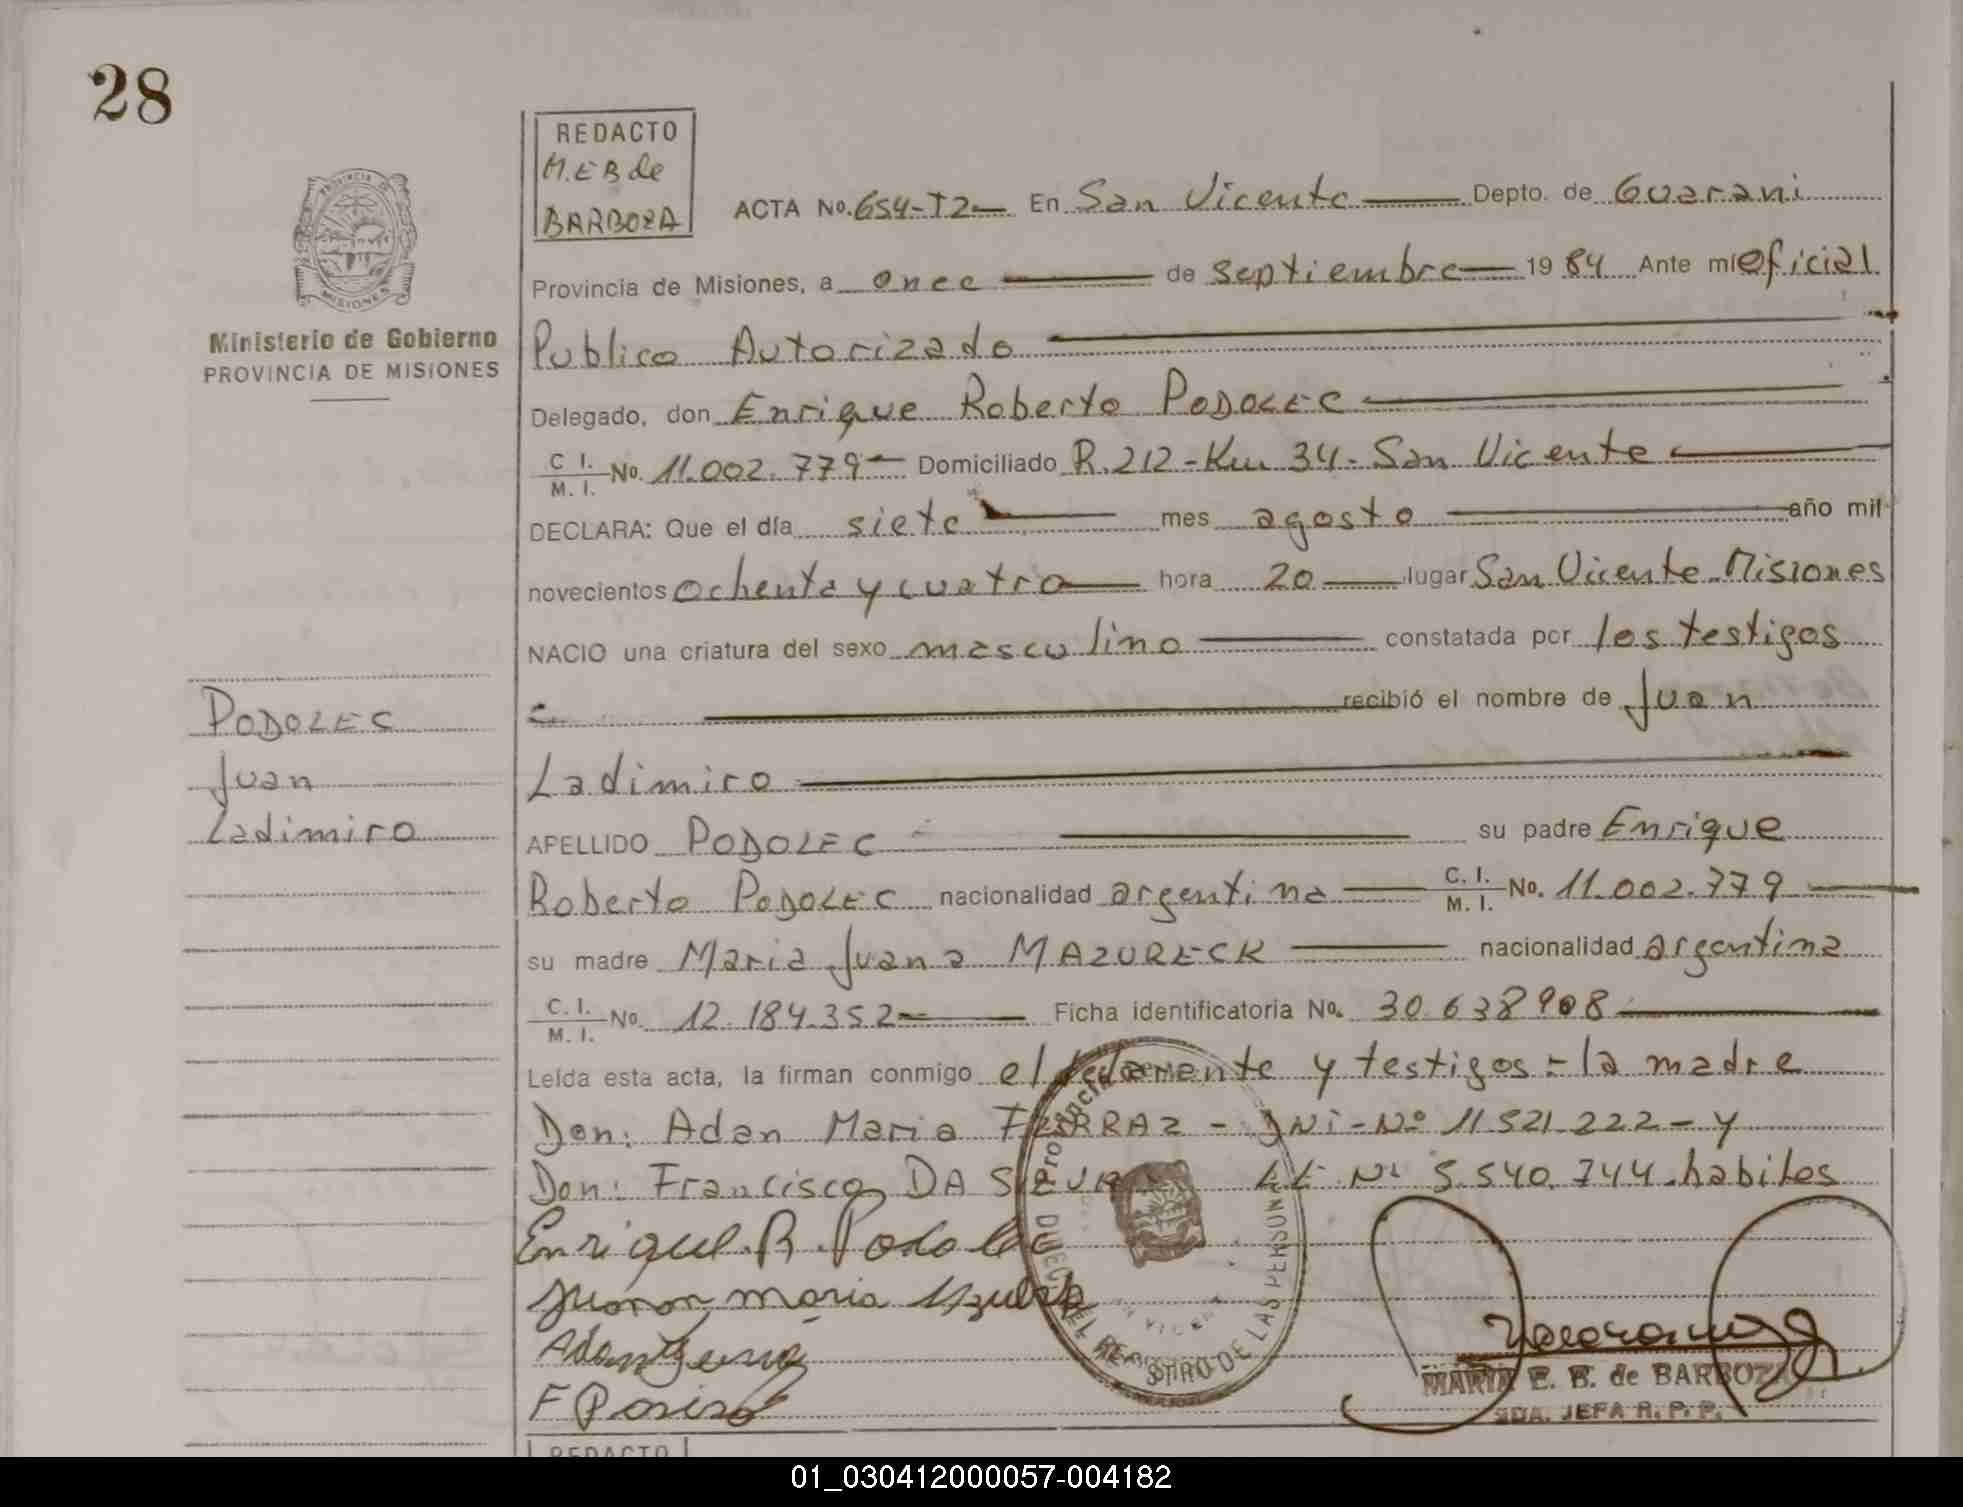 28
REDACTO
M.E B de
BARBOZA
ACTA No. 654-T2- En San Vicente Depto. de Guarani
Provincia de Misiones, a once de septiembre 19 84 Ante mi oficial
Ministerio de Gobierno
PROVINCIA DE MISIONES
Publico Autorizado
Delegado, don Enrique Roberto PODOLEC
C I. M. I. No. 11.002.779 Domiciliado R.212-Km 34- San Vicente
DECLARA: Que el día siete mes agosto año mil
novecientos ochenta y cuatro hora 20 lugar San Vicente Misiones
NACIO una criatura del sexo masculino constatada por los testigos
recibió el nombre de Juan
Ladimiro
PODOLEC
Juan
Ladimiro
APELLIDO PODOLEC su padre Enrique
Roberto PODOLEC nacionalidad argentina C. I. M. I. No. 11.002.779
su madre Maria Juana MAZURECK nacionalidad argentina
C. I. M. I. No. 12.184.352 Ficha identificatoria No. 30.638908
Leída esta acta, la firman conmigo el declarante y testigos = la madre
Don: Adan Maria FERRAZ - DNi - Nº 11521.222 - y
Don: Francisco DA SILVA LE Nº 5.540.744. habiles
Enrique R. Podolec
Adan
F
MARIA E. B. de BARBOZA
2DA. JEFA R. P. P.
REGISTRO DE LAS PERSONAS
REDACTO
01_030412000057-004182